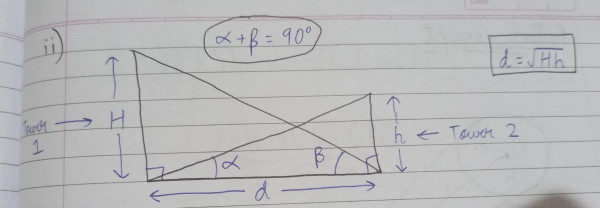 ii)
α + β = 90°
d = √Hh
Tower 1 → H
h ← Tower 2
α
β
d